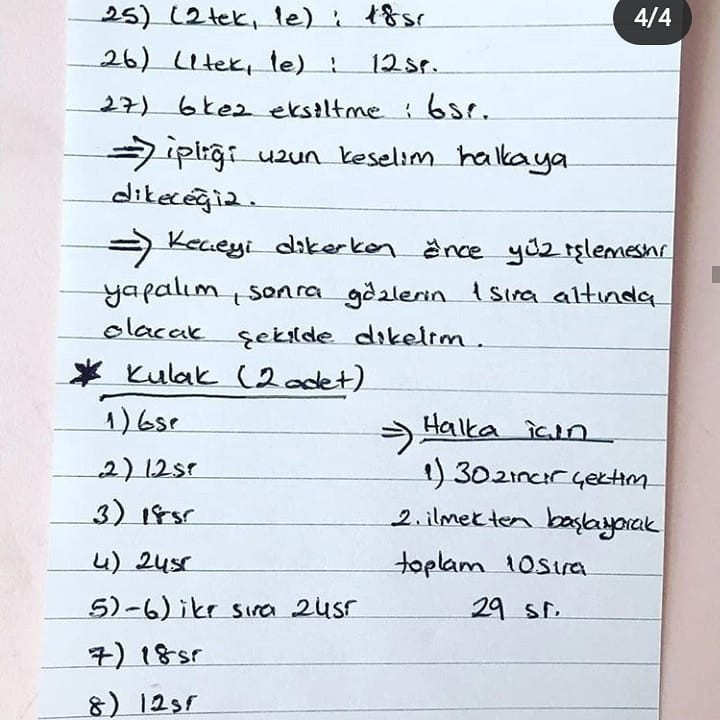 4/4
25) (2tek, 1e) : 18sr
26) (1tek, 1e) : 12sr.
27) 6 kez eksiltme : 6sr.
⇒ ipliği uzun keselim halkaya
dikeceğiz.
⇒ Keçeyi dikerken önce yüz işlemesini
yapalım, sonra gözlerin 1 sıra altında
olacak şekilde dikelim.
* Kulak (2 adet)
1) 6sr
2) 12sr
3) 18sr
4) 24sr
5)-6) iki sıra 24sr
7) 18sr
8) 12sr
⇒ Halka için
1) 30 zincir çektim
2. ilmekten başlayarak
toplam 10 sıra
29 sr.